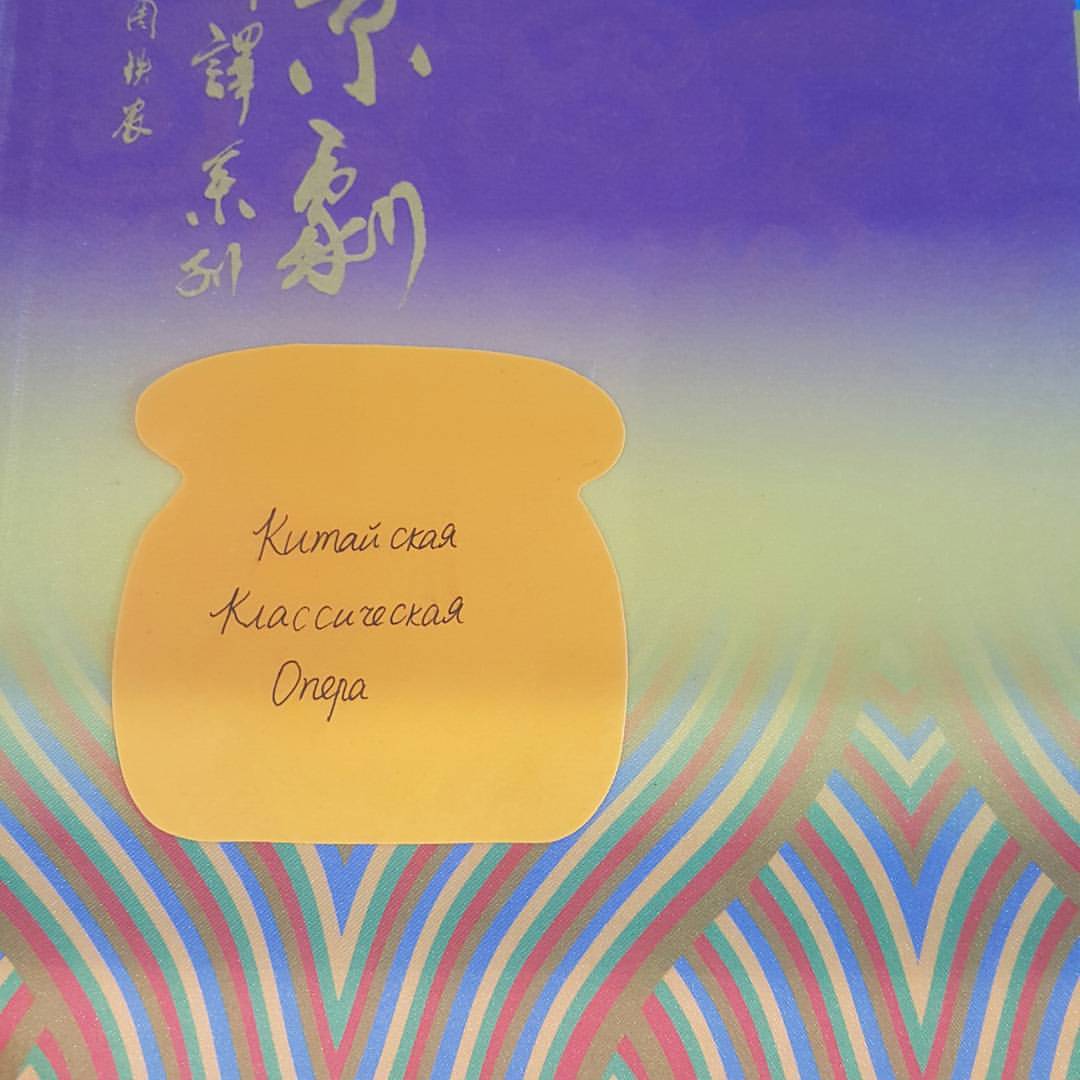 京劇
譯系列
Китайская
Классическая
Опера